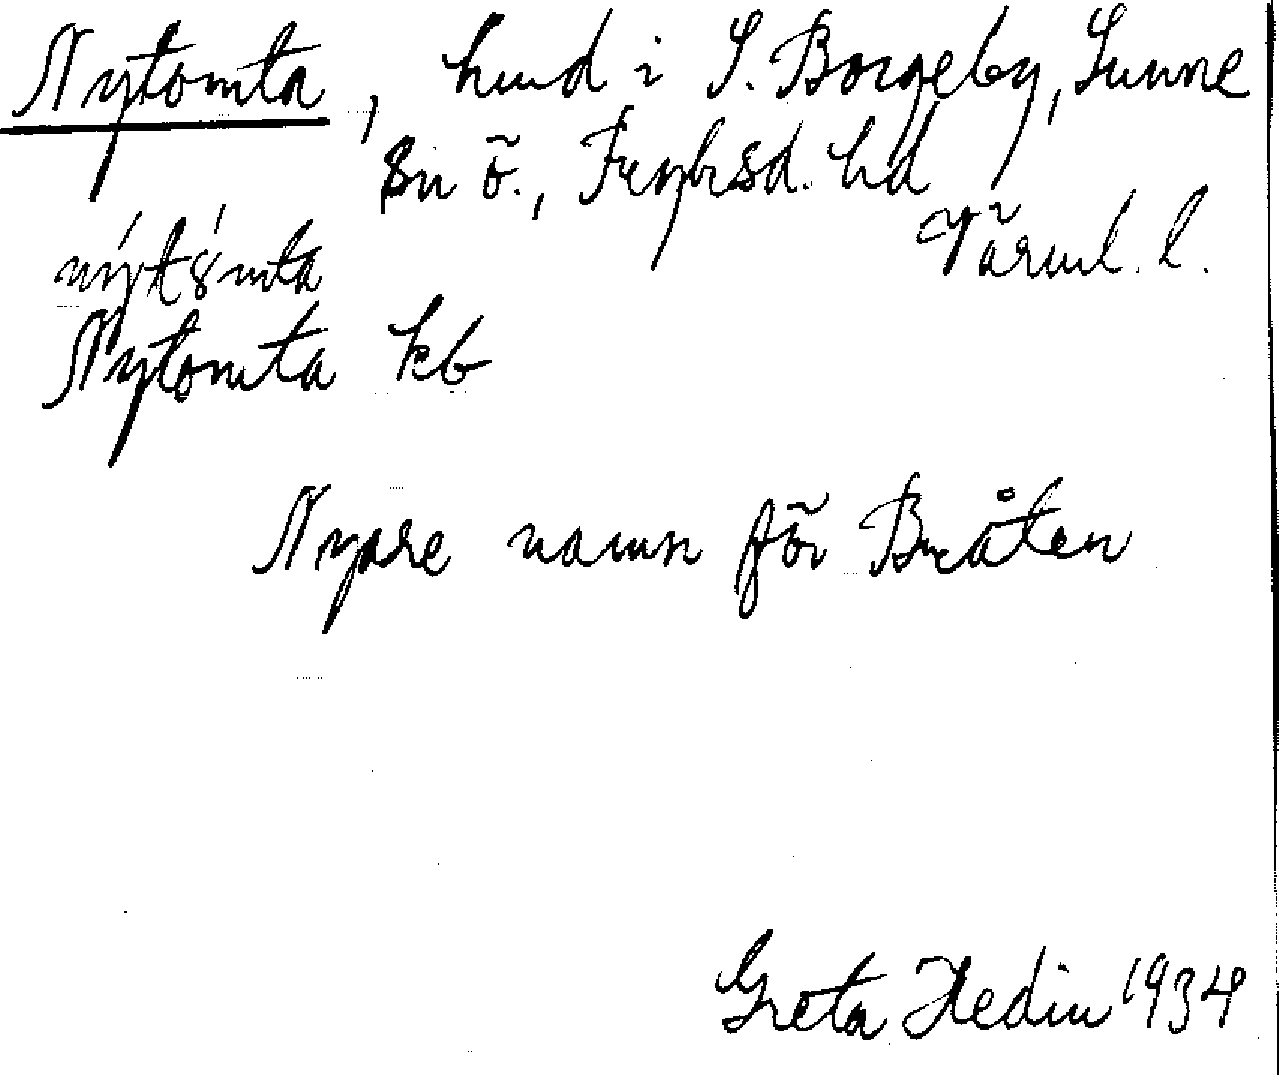 Nytomta, hmd i S. Borgeby, Sunne
sn ö., Fryksd. hd
Värml. l.
Nytomta kb
Nyare namn för Bråten
Greta Hedin 1934